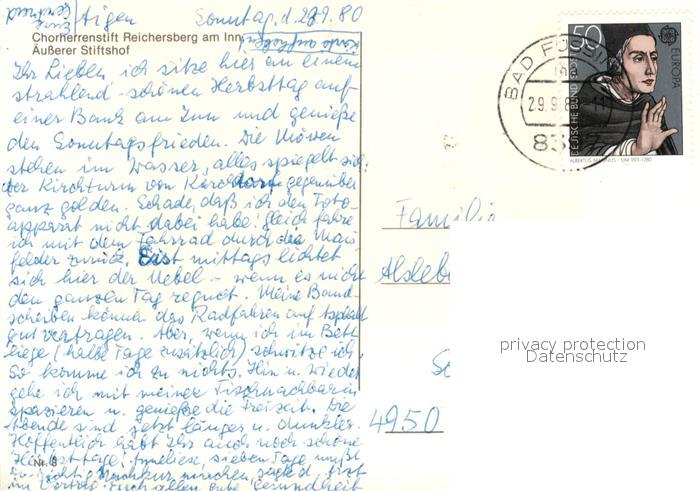 Aigen Sonntag, d. 28.9.80
Chorherrenstift Reichersberg am Inn
Äußerer Stiftshof
Ihr Lieben ich sitze hier an einem
strahlend-schönen Herbsttag auf
einer Bank am Inn und genieße
den Sonntagsfrieden. Die Möwen
stehen im Wasser, alles spiegelt sich:
der Kirchturm von Kirchdorf gegenüber
ganz golden. Schade, daß ich den Foto-
apparat nicht dabei habe. Gleich fahre
ich mit dem Fahrrad durch die Mais
felder zurück. Erst mittags lichtet
sich hier der Nebel – wenn es nicht
den ganzen Tag regnet. Meine Band-
scheiben können das Radfahren auf Asphalt
gut vertragen. Aber, wenn ich im Bett
liege (halbe Tage zusätzlich) schwitze ich.
So komme ich zu nichts. Hin u. wieder
gehe ich mit meiner Tischnachbarin
spazieren u. genieße die Freizeit. Die
Abende sind jetzt länger u. dunkler.
Hoffentlich habt Ihr auch noch schöne
Herbsttage! Anneliese, sieben Tage mußt
Nr. 8
Euch allen gute Gesundheit
50
DEUTSCHE BUNDESPOST
EUROPA
ALBERTUS MAGNUS · UM 1193-1280
BAD FÜSSING
29.9.80-11
Familie
Alsleb
4950
privacy protection
Datenschutz